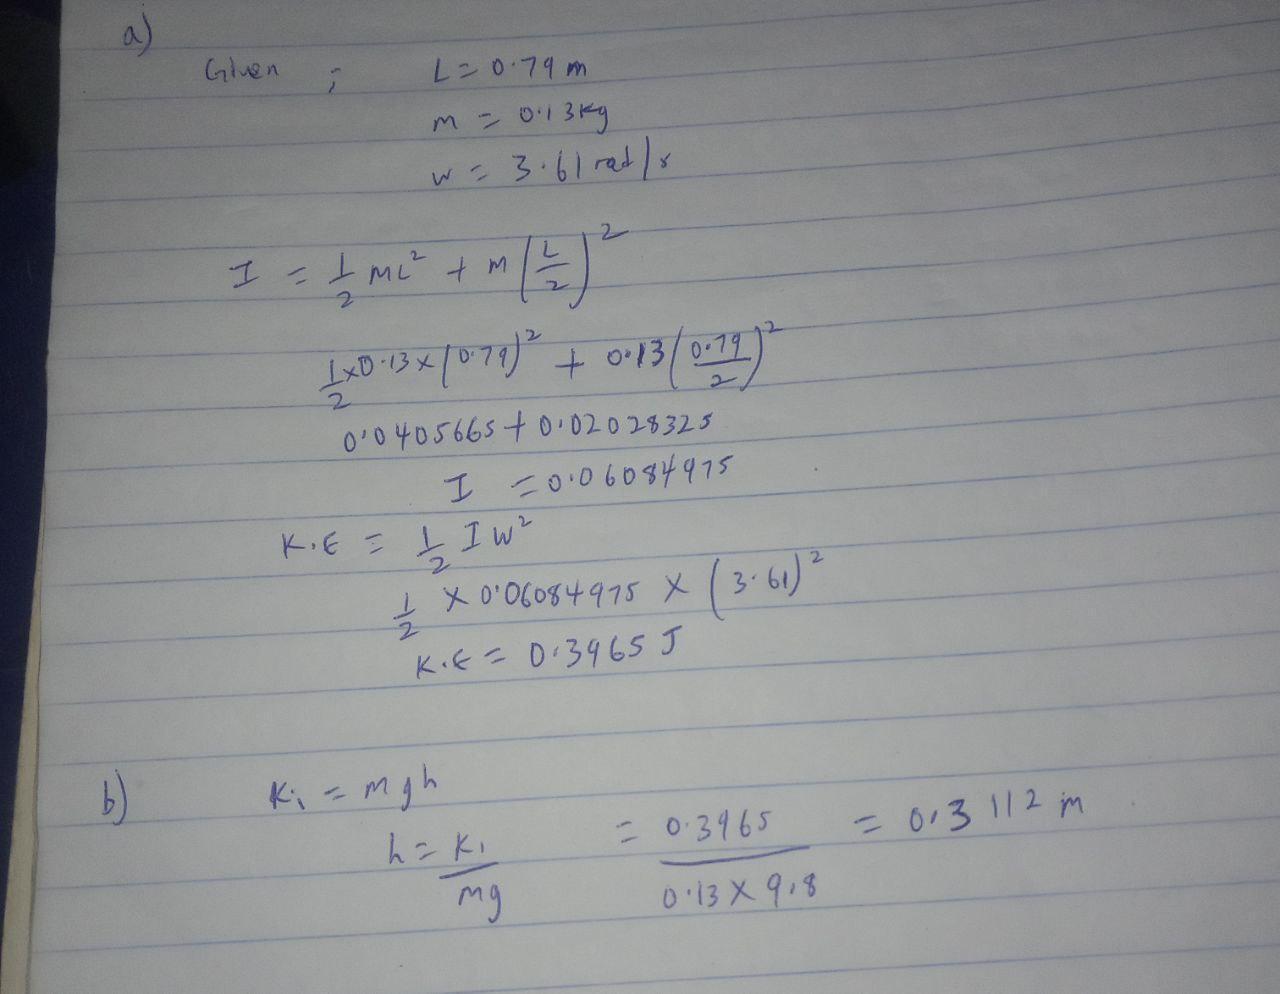 a)
Given ; L = 0.79 m
m = 0.13 kg
w = 3.61 rad/s
I = 1/2 ML² + m (L/2)²
1/2 x 0.13 x (0.79)² + 0.13 (0.79/2)²
0.0405665 + 0.02028325
I = 0.06084975
K.E = 1/2 I w²
1/2 x 0.06084975 x (3.61)²
K.E = 0.3965 J
b) Ki = mgh
h = Ki/mg = 0.3965/0.13 x 9.8 = 0.3112 m